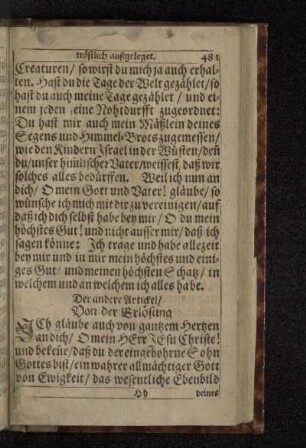 tröstlich außgeleget. 481
Creaturen / so wirst du mich ja auch erhal-
ten. Hast du die Tage der Welt gezählet / so
hast du auch meine Tage gezählet / und ei-
nem jeden seine Nohtdurfft zugeordnet:
Du hast mir auch mein Mäßlein deines
Segens und Himmel-Brots zugemessen /
wie den Kindern Israel in der Wüsten / deñ
du / unser himlischer Vater / weissest, daß wir
solches alles bedürffen. Weil ich nun an
dich / O mein Gott und Vater! gläube / so
wünsche ich mich mit dir zu vereinigen / auf
daß ich dich selbst habe bey mir / O du mein
höchstes Gut! und nicht ausser mir / daß ich
sagen könne: Ich trage und habe allezeit
bey mir und in mir mein höchstes und eini-
ges Gut / und meinen höchsten Schatz / in
welchem und an welchem ich alles habe.
Der andere Articul /
Von der Erlösung
ICh gläube auch von gantzem Hertzen
an dich / O mein HErr JEsu Christe!
und bekeñe / daß du der eingebohrne Sohn
Gottes bist / ein wahrer allmächtiger Gott
von Ewigkeit / das wesentliche Ebenbild
Hh deines